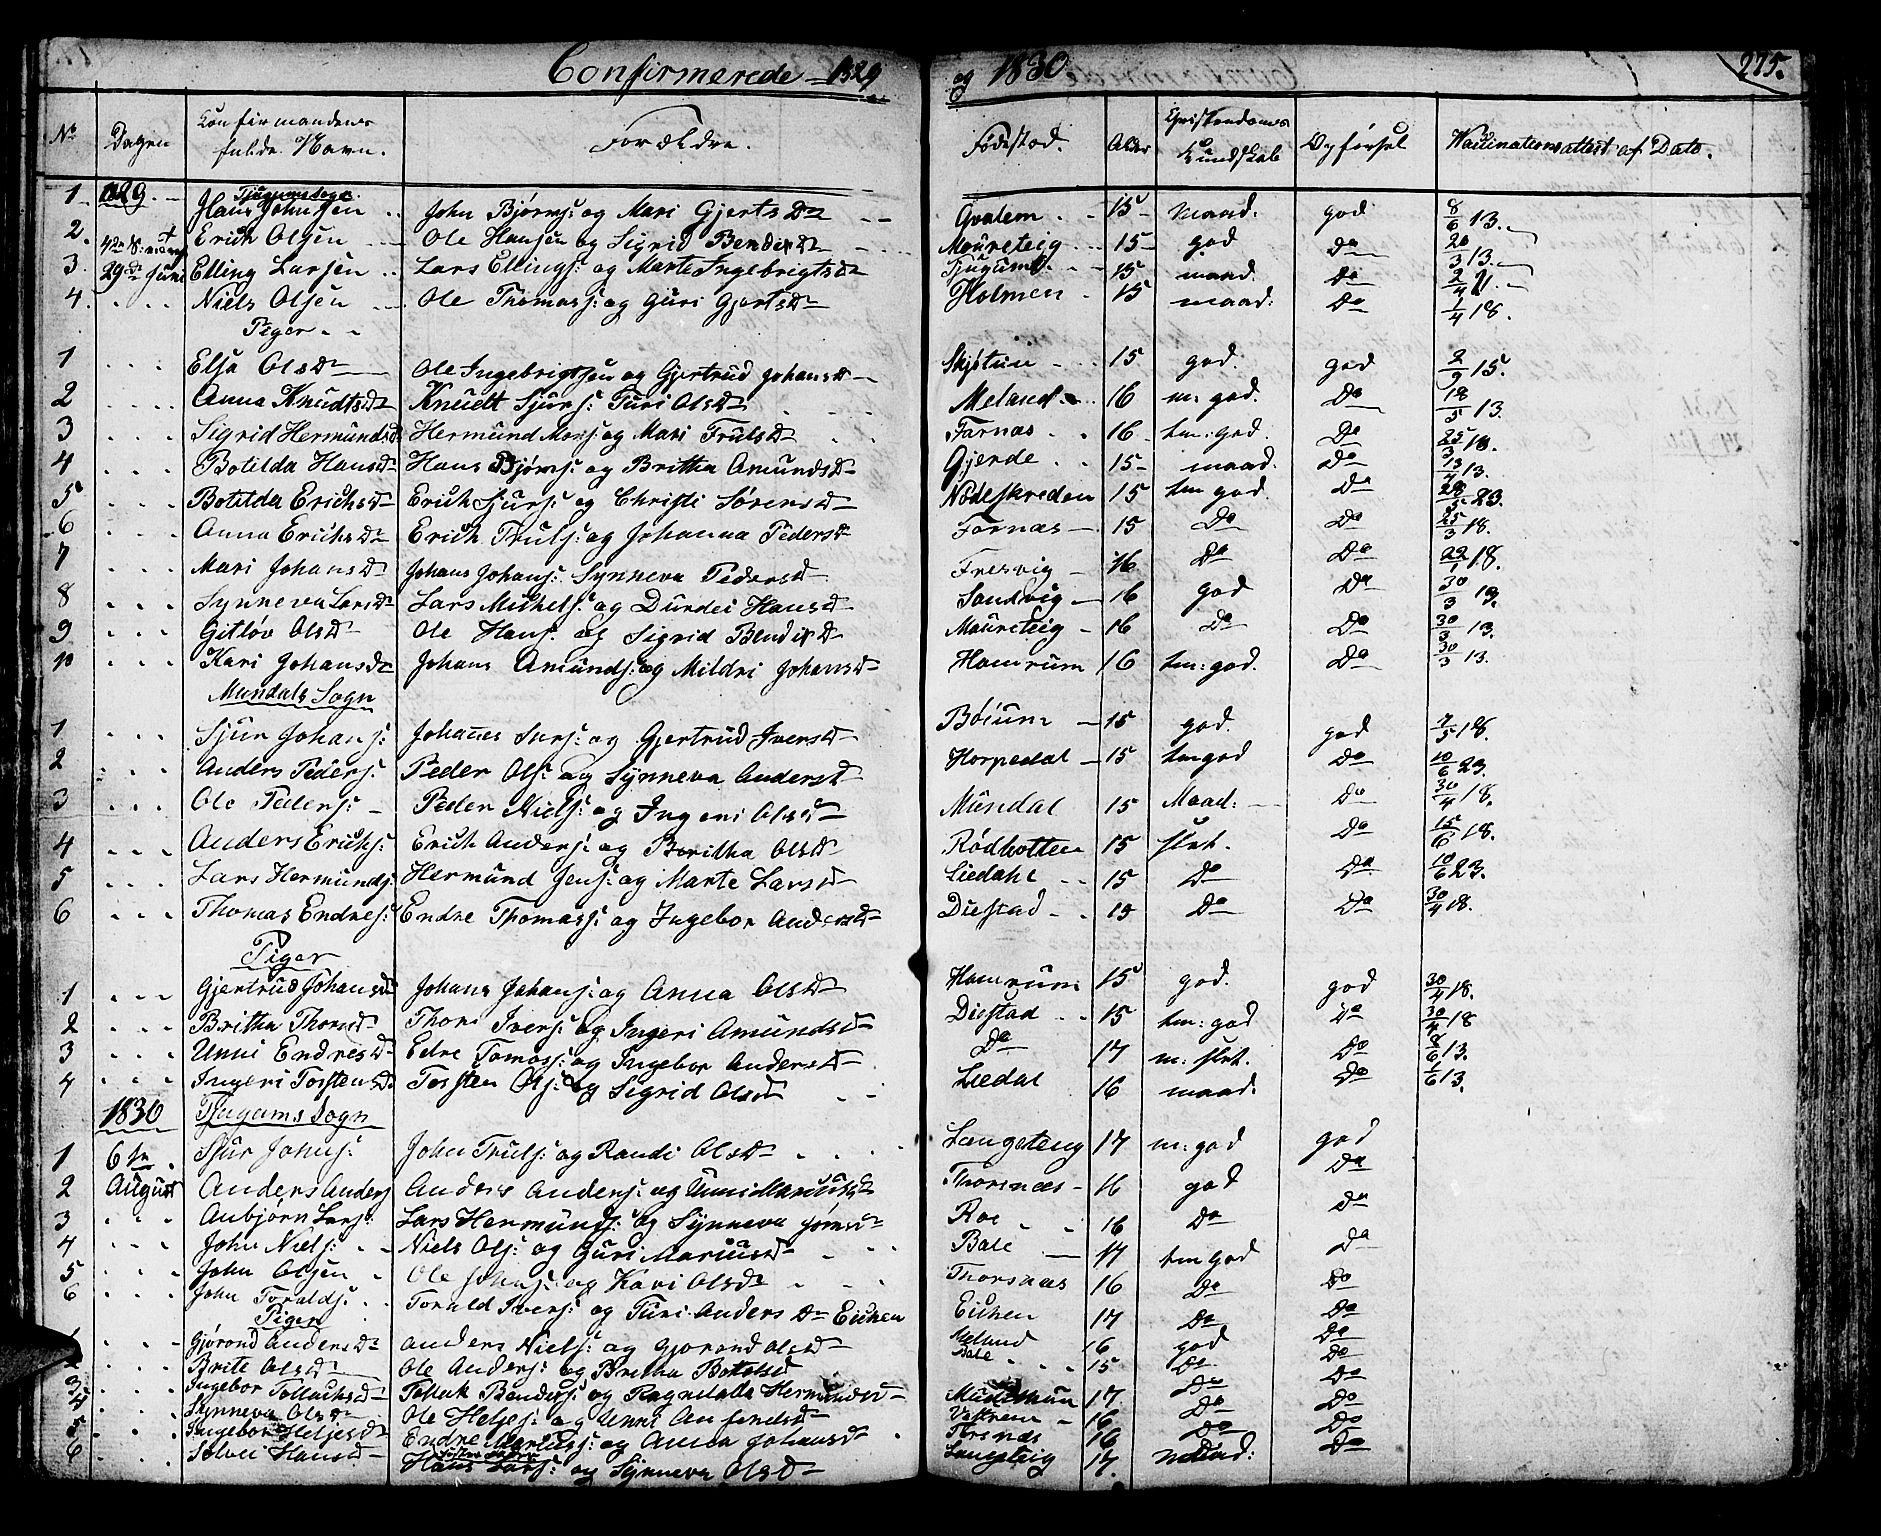 Confirmerede 1829 og 1830 275.
No Dagen Confirmandens fulde Navn. Forældre. Fødested. Alder Christendoms Kundskab Opførsel Vaccinationsattest af Dato.
Tjugums Sogn
1 1829 Hans Johnsen John Bjørns: og Mari Gjertsdr Gvalem 15 maad. god 8/6 13.
2. Erich Olsen Ole Hansen og Sigrid Bendixdr Maureteig 15 god Do 20/3 13.
3. 29de Juni Elling Larsen Lars Ellings: og Marte Ingebrigtsdr Tjugum 15 maad. Do
4. Niels Olsen Ole Thomass: og Guri Gjertsdr Holmen 15 maad: Do 1/4 18.
Piger
1 Elsa Olsdr Ole Ingebrigtsen og Gjertrud Johansdr 15 god. god 2/9 15.
2 Anna Knudtsdr Knudt Sjurs: Turi Olsdr Meland 16 m: god. Do 18/5 13.
3 Sigrid Hermundsd Hermund Mons: og Mari Trulsdr Farnæs 16 tm: god. Do
4 Botilda Hansdr Hans Bjørns: og Britha Amundsdr Gjerde 15 maad. Do 13/4 13.
5 Botilda Erichsdr Erich Sjurs: og Christi Sørensdr Nødeskreden 15 tm god. Do
6 Anna Erichsdr Erich Truls: og Johanna Pedersdr Farnæs 15 Do Do 25/3 18.
7 Mari Johansdr Johans Johans: Synneva Pedersdr Fresvig 16 Do Do 22/1 18.
8 Synneva Larsdr Lars Michels: og Durdei Hansdr Sandvig 16 god Do 30/3 13.
9 Gitløv Olsdr Ole Hans: og Sigrid Bendixdr Maureteig 16 Do Do 30/3 13.
10 Kari Johansdr Johans Amunds: og Mildri Johansdr Hamrum 16 tm: god. Do 30/3 13.
Mundals Sogn
1 Sjur Johans: Johanes Surs: og Gjertrud Iversdr Bøium 15 god. god 7/5 18.
2 Anders Peders: Peder Ols: og Synneva Andersdr Horpedal 15 tm god Do 10/6 23.
3 Ole Peders: Peder Niels: og Ingeri Olsdr Mundal 15 Maad: Do 30/4 18.
4 Anders Erichs: Erich Anders: og Beritha Olsdr Rødbotten 15 slet. Do 15/6 18.
5 Lars Hermunds: Hermund Jens: og Marte Larsdr Liedahl 15 Do Do 10/6 23.
6 Thomas Endres: Endre Thomass: og Ingebor Andersdr Distad 15 Do Do 30/4 18.
Piger
1 Gjertrud Johansdr Johans Johans: og Anna Olsdr Hamrum 15 god. god 30/4 18.
2 Britha Thorsdr Thor Ivers: og Ingeri Amundsdr Distad 15 tm: god Do 30/4 18
3 Unni Endresdr Edre Tomass: og Ingebor Andersdr Do 17 m: slet. Do 8/6 13.
4 Ingeri Torstensdr Torsten Ols: og Sigrid Olsdr Liedal 16 maad: Do 1/6 13.
1830 Tjugums Sogn
1 6te Sjur Johns: John Truls: og Randi Olsdr Langeteig 17 m: god god
2 August Anders Anders: Anders Anders: og Unni Mariusdr Thorsnæs 16 god Do
3 Anbjørn Lars: Lars Hermunds: og Synneva Jørnsdr Roe 16 Do Do
4 John Niels: Niels Ols: og Guri Mariusdr Bale 17 tm god Do
5 John Olsen Ole Johns: og Kari Olsdr Thorsnæs 16 Do Do
6 John Toralds: Torald Ivers: og Turi Andersdr Eichen Eichen 17 Do Do
Piger
1 Gjørond Andersdr Anders Niels: og Gjorond Olsdr Melland 16 god Do
2 Brite Olsdr Ole Anders: og Britha Botolsd Bale 15 Do Do
3 Ingebor Tollachsdr Tollak Bendix: og Ragnilda Hermundsdr 17. Do Do
4 Synneva Olsdr Ole Heljes: og Unni Anfindsdr 16 Do Do
5 Ingebor Heljesdr Endre Marius: og Anna Johansdr 16 Do Do
6 Sølvei Hansdr Hans Lars: og Synneva Olsdr Langeteig 17. maad: Do